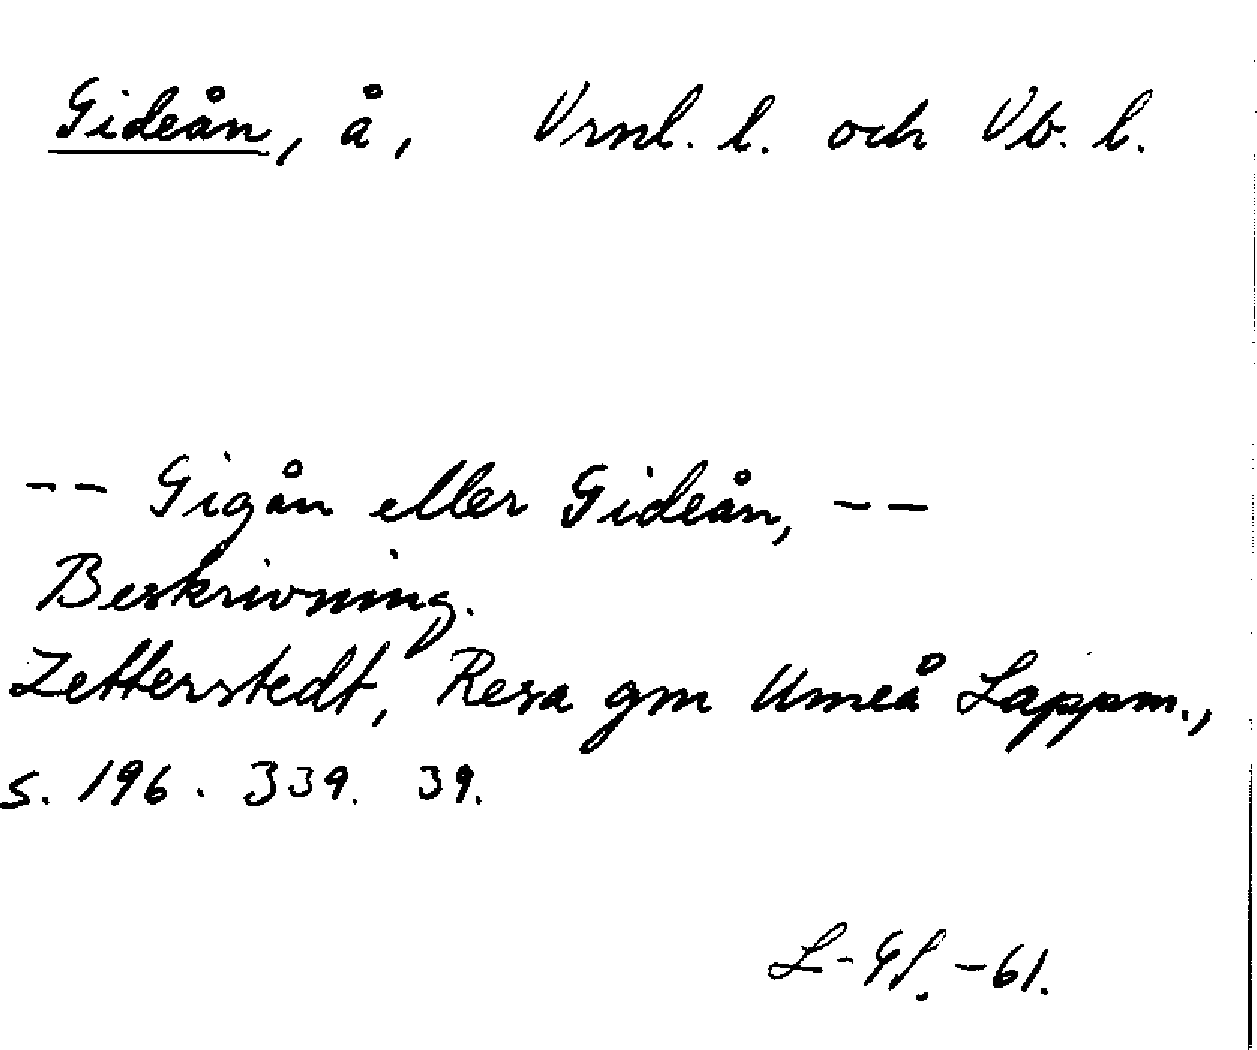 Gideån, å, Vrnl. l. och Vb. l.
-- Gigån eller Gideån, --
Beskrivning.
Zetterstedt, Resa gm Umeå Lappm.,
s. 196. 339. 39.
L-Gl. -61.